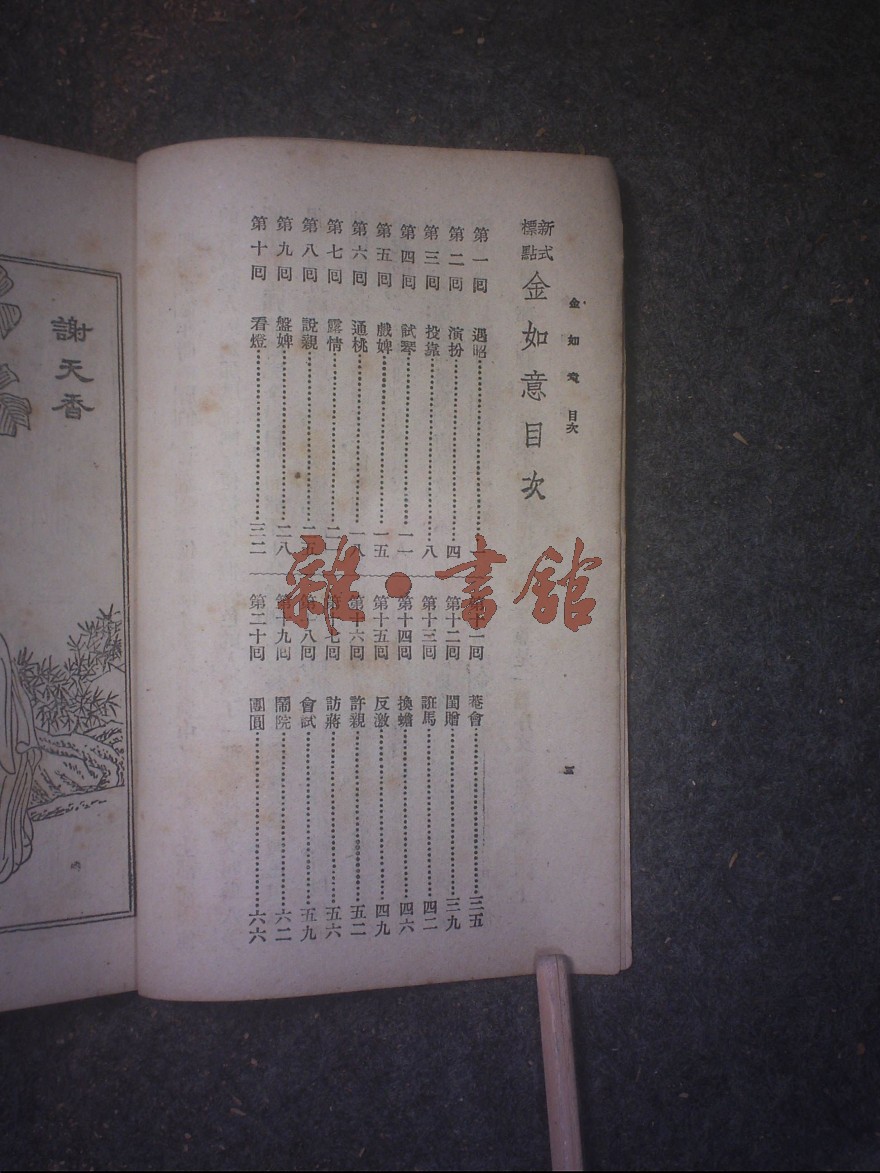 金如意 目次
五
新式標點 金如意目次
第一回 遇昭
第二回 演扮 四
第三回 投靠 八
第四回 試琴 一一
第五回 戲婢 一五
第六回 通桃 一八
第七回 露情
第八回 說親 二五
第九回 盤婢 二八
第十回 看燈 三二
第十一回 菴會 三五
第十二回 閨贈 三九
第十三回 誑馬 四二
第十四回 換蟾 四六
第十五回 反激 四九
第十六回 許親 五二
第十七回 訪蔣 五六
第十八回 會試 五九
第十九回 鬧院 六二
第二十回 團圓 六六
謝天香
雜·書館